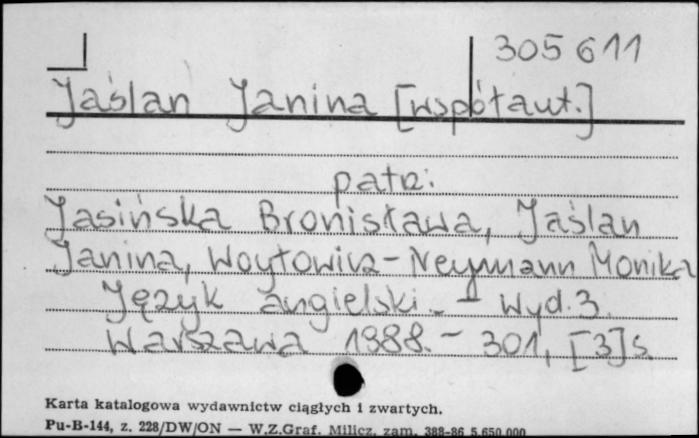 305611
Jaślan Janina [współaut.]
patrz:
Jasińska Bronisława, Jaślan
Janina, Woytowicz-Neymann Monika
Język angielski. - Wyd. 3.
Warszawa 1988. - 301, [3] s.
Karta katalogowa wydawnictw ciągłych i zwartych.
Pu-B-144, z. 228/DW/ON — W.Z.Graf. Milicz, zam. 388-86 5.650.000